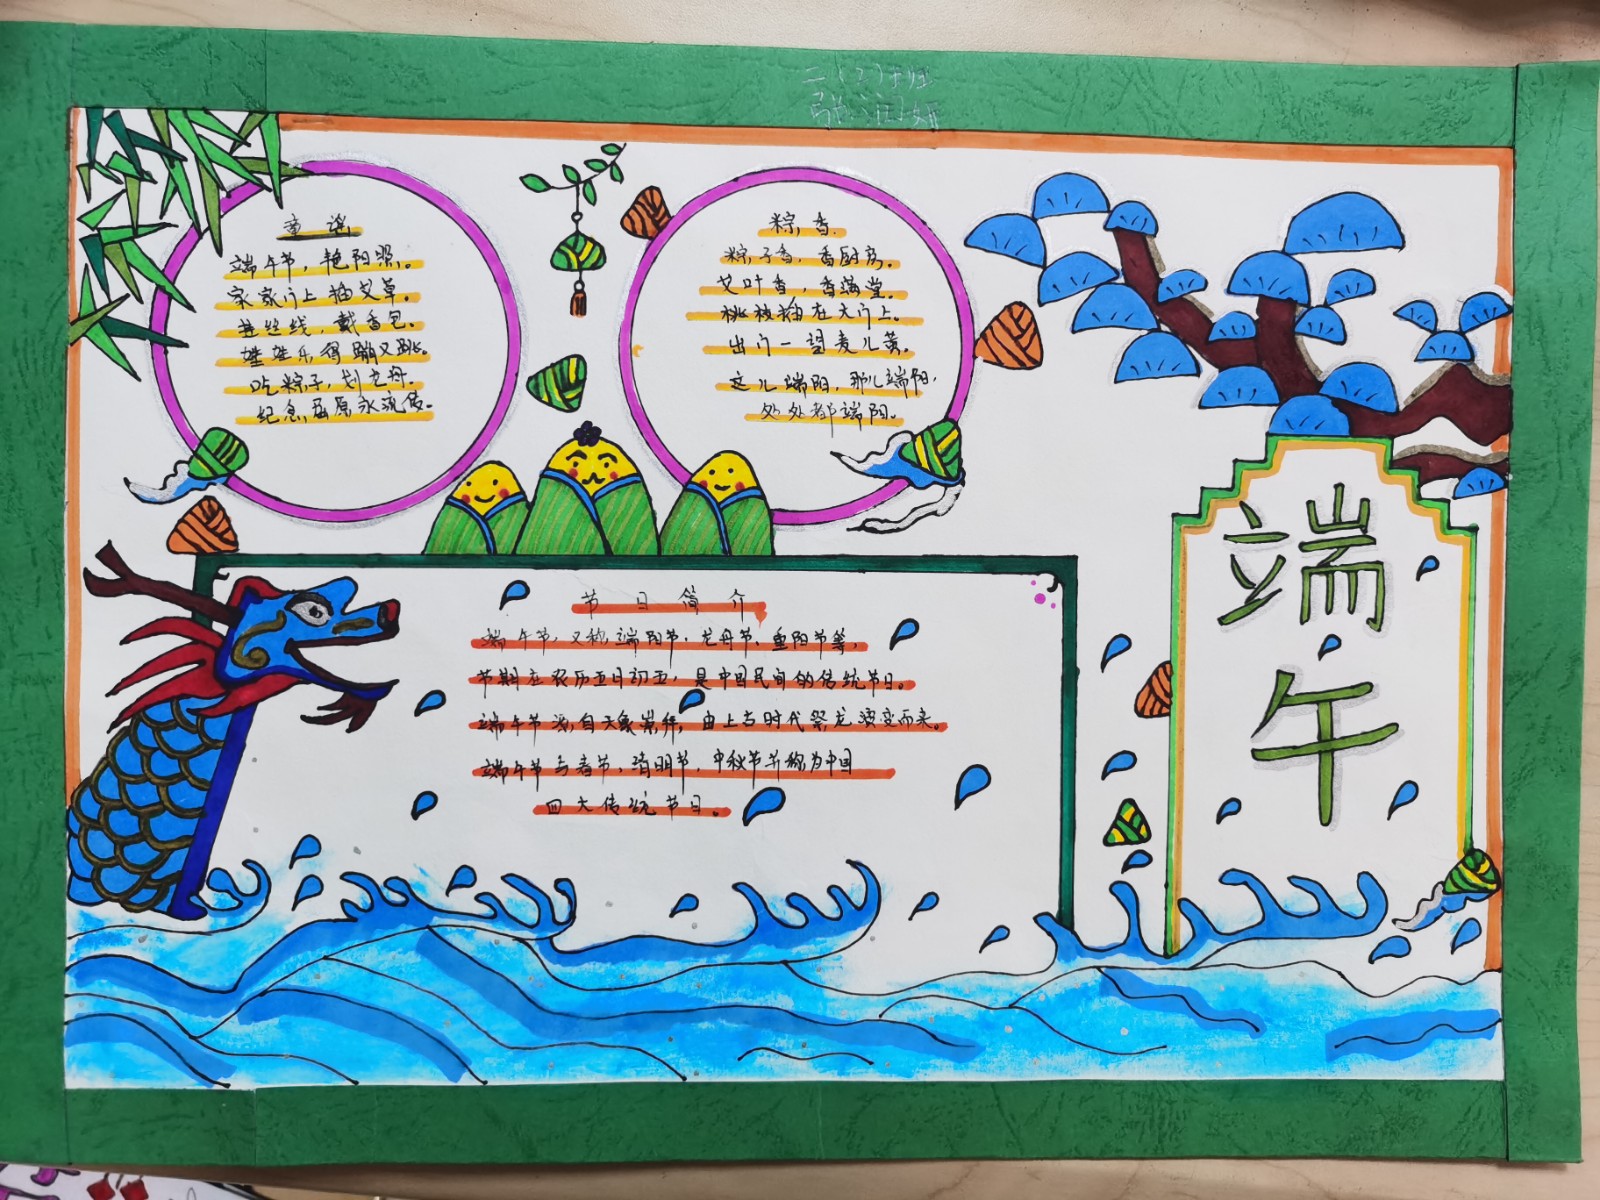 二(2)班
童谣
端午节，艳阳照。
家家门上插艾草。
挂丝线，戴香包。
娃娃乐得蹦又跳。
吃粽子，划龙舟。
纪念屈原永流传。
粽香
粽子香，香厨房。
艾叶香，香满堂。
桃枝插在大门上。
出门一望麦儿黄。
这儿端阳，那儿端阳，
处处都端阳。
端午
节日简介
端午节，又称端阳节，龙舟节、重阳节等，
节期在农历五日初五，是中国民间的传统节日。
端午节源自天象崇拜，由上古时代祭龙演变而来。
端午节与春节、清明节，中秋节并称为中国
四大传统节日。